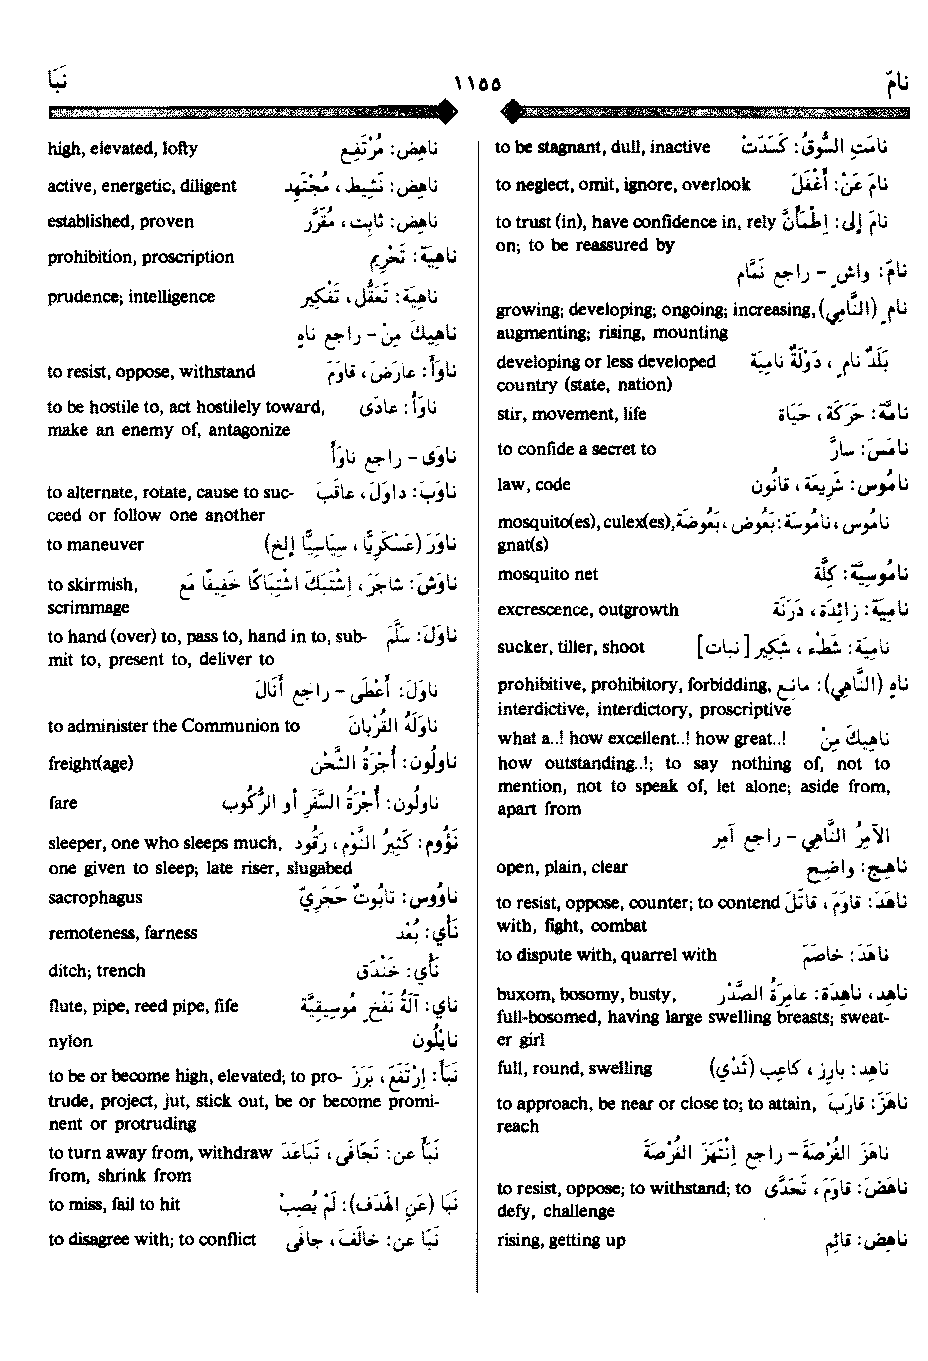 نامّ
١١٥٥
نَبَا
نامَتِ السُّوقُ: كَسَدَتْ to be stagnant, dull, inactive
نامَ عَنْ: أَغْفَلَ to neglect, omit, ignore, overlook
نامَ إلى: اِطْمَأَنَّ to trust (in), have confidence in, rely
on; to be reassured by
نامّ: واشٍ - راجع نَمَّام
نامٍ (النَّامِي) growing; developing; ongoing; increasing,
augmenting; rising, mounting
بَلَدٌ نامٍ، دَوْلَةٌ نامِيَة developing or less developed
country (state, nation)
نامَّة: حَرَكَة، حَيَاة stir, movement, life
نامَسَ: سارَّ to confide a secret to
نامُوس: شَرِيعَة، قانُون law, code
نامُوس، نامُوسَة: بَعُوض، بَعُوضَة mosquito(es), culex(es),
gnat(s)
نامُوسِيَّة: كِلَّة mosquito net
نامِيَة: زائِدَة، دَرَنَة excrescence, outgrowth
نامِيَة: شَطْء، شَكِير [نبات] sucker, tiller, shoot
ناهٍ (النَّاهِي): مانِع prohibitive, prohibitory, forbidding,
interdictive, interdictory, proscriptive
ناهِيكَ مِنْ what a..! how excellent..! how great..!
how outstanding..!; to say nothing of, not to
mention, not to speak of, let alone; aside from,
apart from
الآمِرُ النَّاهِي - راجع آمِر
ناهِج: واضِح open, plain, clear
ناهَدَ: قاوَمَ، قاتَلَ to resist, oppose, counter; to contend
with, fight, combat
ناهَدَ: خاصَمَ to dispute with, quarrel with
ناهِد، ناهِدَة: عامِرَةُ الصَّدْر buxom, bosomy, busty,
full-bosomed, having large swelling breasts; sweat-
er girl
ناهِد: بارِز، كاعِب (ثَدْي) full, round, swelling
ناهَزَ: قارَبَ to approach, be near or close to; to attain,
reach
ناهَزَ الفُرْصَةَ - راجع اِنْتَهَزَ الفُرْصَةَ
ناهَضَ: قاوَمَ، تَحَدَّى to resist, oppose; to withstand; to
defy, challenge
ناهِض: قائِم rising, getting up
ناهِض: مُرْتَفِع high, elevated, lofty
ناهِض: نَشِيط، مُجْتَهِد active, energetic, diligent
ناهِض: ثابِت، مُقَرَّر established, proven
ناهِيَة: تَحْرِيم prohibition, proscription
ناهِيَة: تَعَقُّل، تَفْكِير prudence; intelligence
ناهِيكَ مِنْ - راجع ناهٍ
ناوَأَ: عارَضَ، قاوَمَ to resist, oppose, withstand
ناوَأَ: عادَى to be hostile to, act hostilely toward,
make an enemy of, antagonize
ناوَى - راجع ناوَأَ
ناوَبَ: داوَلَ، عاقَبَ to alternate, rotate, cause to suc-
ceed or follow one another
ناوَرَ (عَسْكَرِيًّا، سِيَاسِيًّا إلخ) to maneuver
ناوَشَ: شاجَرَ، اِشْتَبَكَ اشْتِبَاكًا خَفِيفًا مَعَ to skirmish,
scrimmage
ناوَلَ: سَلَّمَ to hand (over) to, pass to, hand in to, sub-
mit to, present to, deliver to
ناوَلَ: أَعْطَى - راجع أَنَالَ
ناوَلَهُ القُرْبَانَ to administer the Communion to
ناوُلُون: أُجْرَةُ الشَّحْن freight(age)
ناوُلُون: أُجْرَةُ السَّفَرِ أو الرُّكُوب fare
نَؤُوم: كَثِيرُ النَّوْم، رَقُود sleeper, one who sleeps much,
one given to sleep; late riser, slugabed
ناوُوس: تابُوتٌ حَجَرِيّ sacrophagus
نَأْي: بُعْد remoteness, farness
نَأْي: خَنْدَق ditch; trench
ناي: آلَةُ نَفْخٍ مُوسِيقِيَّة flute, pipe, reed pipe, fife
نايْلُون nylon
نَبَأَ: اِرْتَفَعَ، بَرَزَ to be or become high, elevated; to pro-
trude, project, jut, stick out, be or become promi-
nent or protruding
نَبَأَ عن: تَجَافَى، تَبَاعَدَ to turn away from, withdraw
from, shrink from
نَبَا (عَنِ الهَدَف): لَمْ يُصِبْ to miss, fail to hit
نَبَا عن: خالَفَ، جافَى to disagree with; to conflict